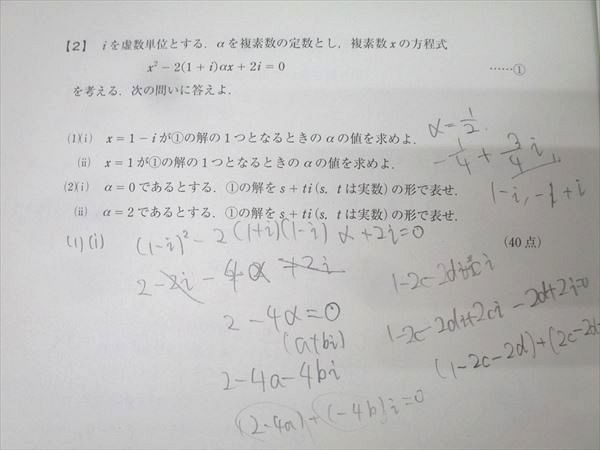 【2】 iを虚数単位とする．αを複素数の定数とし，複素数xの方程式
x²－2(1＋i)αx＋2i＝0 ……①
を考える．次の問いに答えよ．
(1)(i) x＝1－iが①の解の1つとなるときのαの値を求めよ．
(ii) x＝1が①の解の1つとなるときのαの値を求めよ．
(2)(i) α＝0であるとする．①の解をs＋ti(s，tは実数)の形で表せ．
(ii) α＝2であるとする．①の解をs＋ti(s，tは実数)の形で表せ．
(40点)
α=1/2.
-1/4 + 3/4 i
1-i, -1+i
(1)(i) (1-i)²-2(1+i)(1-i)α+2i=0
2-4α=0
(a+bi)
2-4a-4bi
(2-4a)+(-4b)i=0
1-2c-2di+2ci-2d+2i=0
(1-2c-2d)+(2c-2d